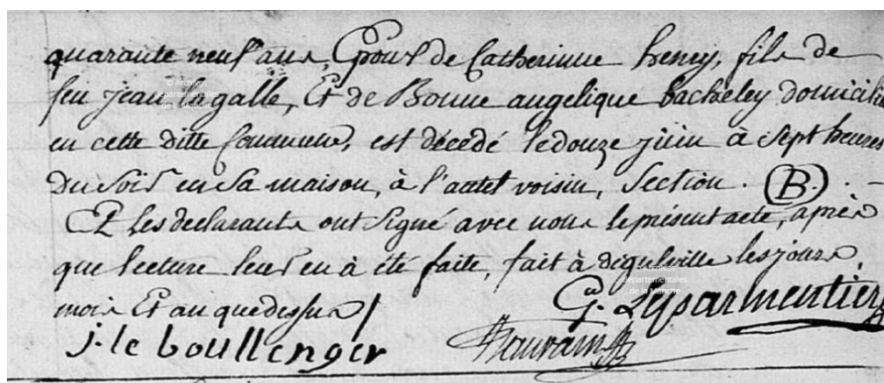 quarante neuf ans, Epoux de Catherinne henry, fils de
feu jean lagalle, Et de Bonne angelique bacheley domicilié
en cette ditte Commune, est décedé ledouze juin à Sept heures
du Soir en Sa maison, à l'autel voisin, Section. (B.) -
Et les declarants ont Signé avec nous leprésent acte, après
que lecture leur en à été faite, fait à digulville les jours,
mois Et an quedessus /
G. Leparmentier
j. le boullenger